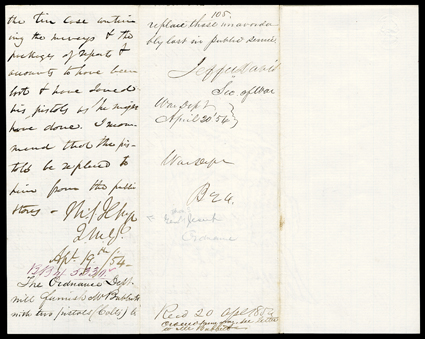 the tin case contain
ing the surveys & the
packages of report &
accounts to have been
lost & have saved
his pistols as he might
have done. I recom
mend that the pis-
tols be replaced to
him from the public
stores -
Apl. 19th /54 -
The Ordnance Dept.
will furnish Mr Babbitt
with two pistols (Colts) to
105.
replace those unavoida
bly lost in public service
Jeffn Davis
Sec of War
War Dept
April 20 '54
War Dept
Ordnance
Recd 20 Apl 185
to Mr Babbitt